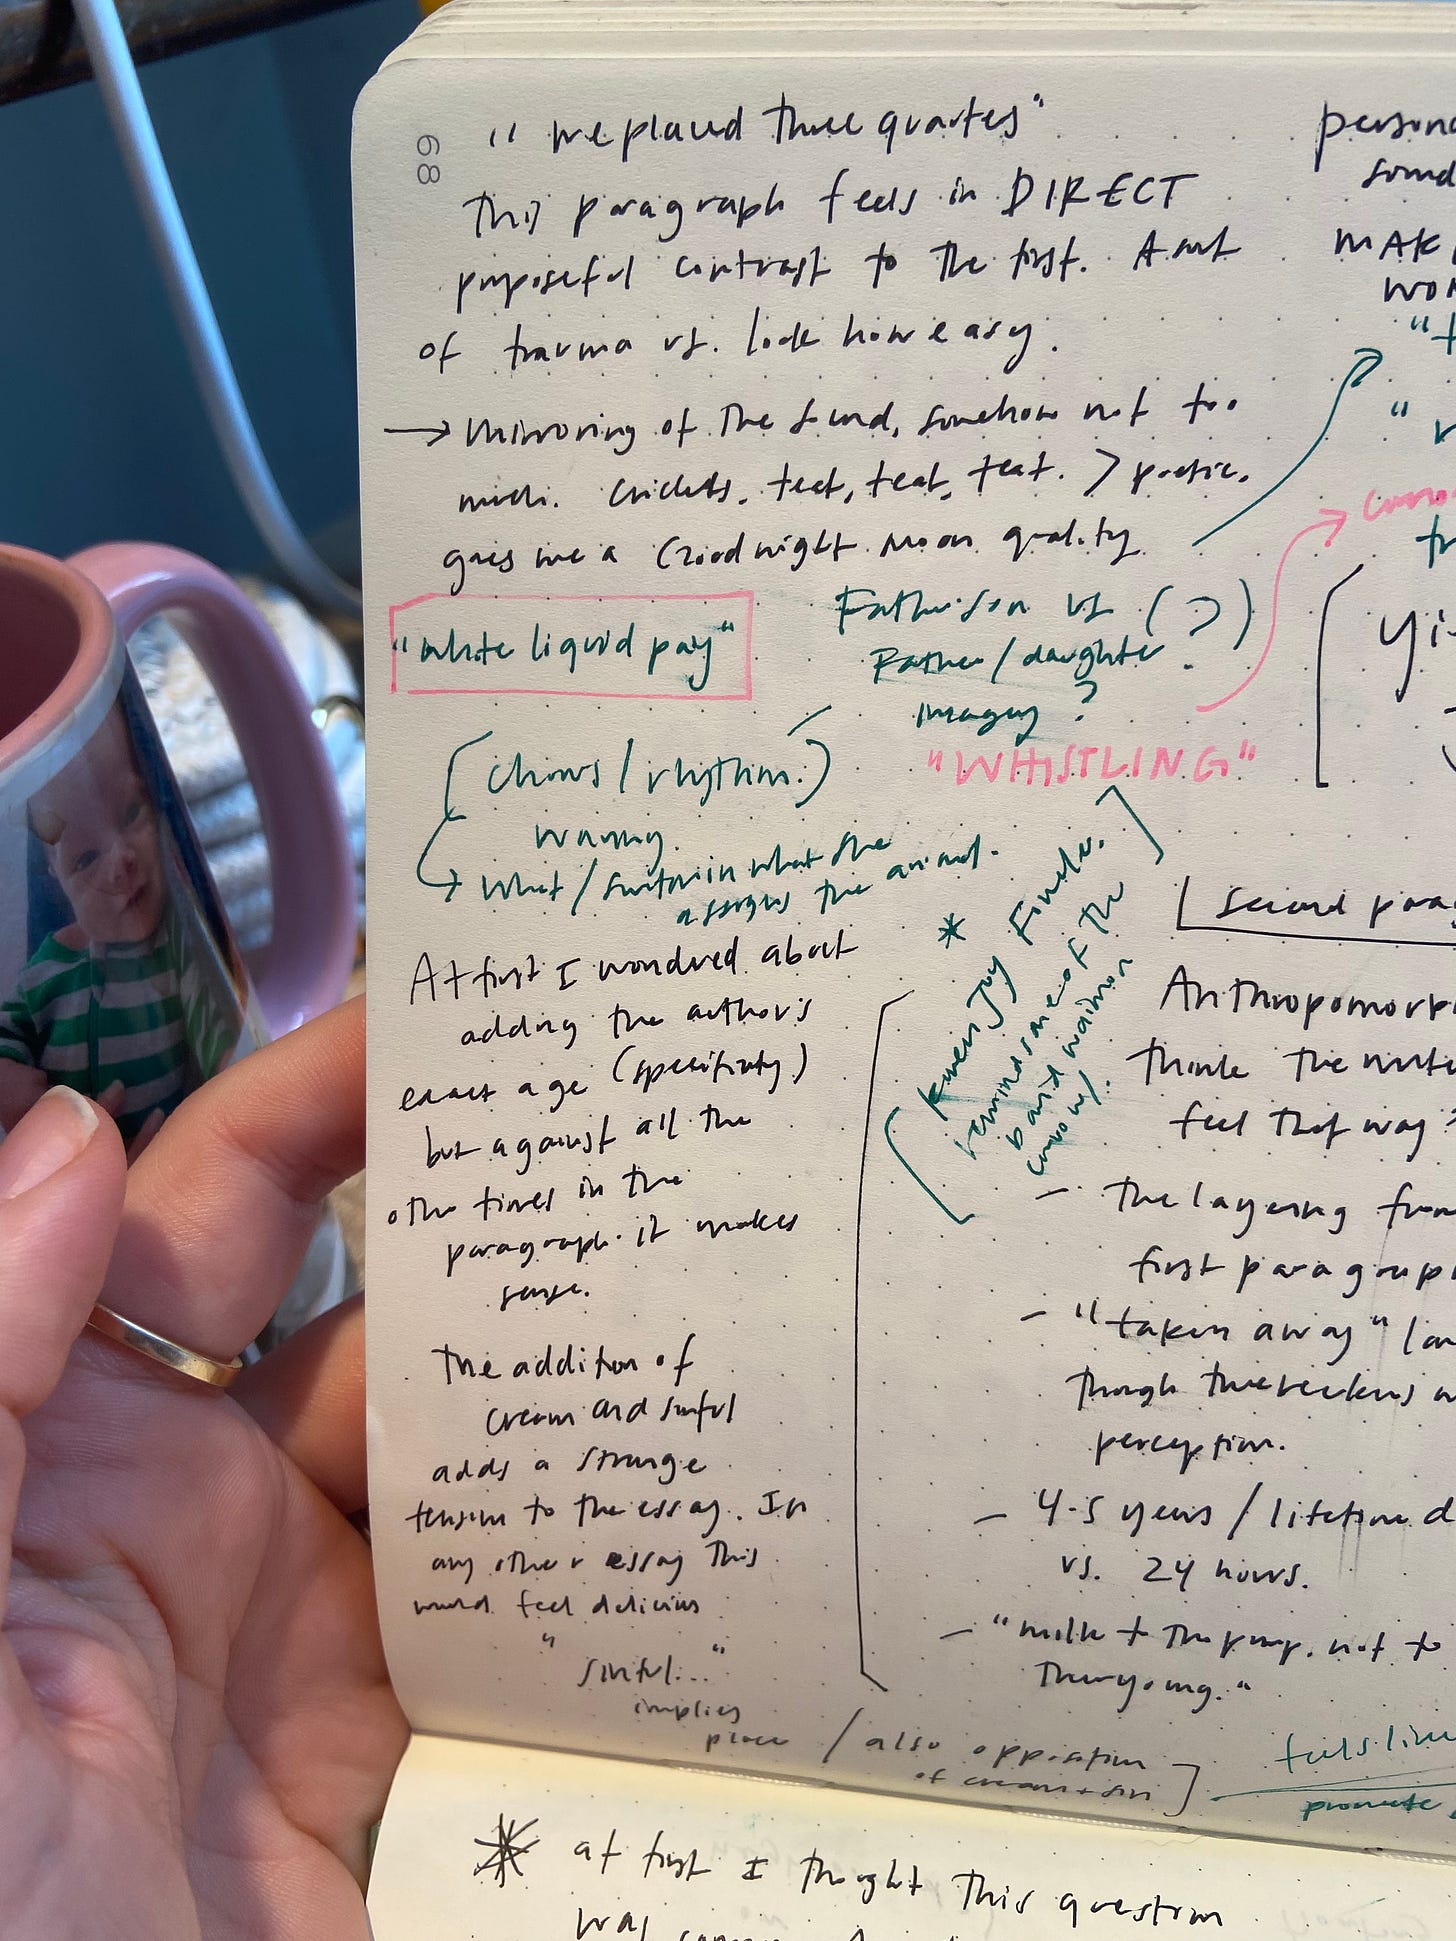 68
"we placed three quartes"
This paragraph feels in DIRECT
purposeful contrast to the first. A sort
of trauma vs. look how easy.
→ Mirroring of the sound, somehow not too
much. Crickets, teet, teat, teat. > poetic.
gives me a Goodnight Moon quality
"white liquid pay"
Father/son vs (?)
Father/daughter
imagery?
(chaos/rhythm.)
"WHISTLING"
what/ what she
assigns the animal.
* Karen Joy Fowler.
reminds me of the
At first I wondered about
adding the author's
exact age (specificity)
but against all the
other times in the
paragraph it makes
sense.
The addition of
cream and sinful
adds a strange
tension to the essay. In
any other essay this
would feel delicious
"sinful..."
implies
place / also opposition
of cream + sin
persona
sound
MAK
WOR
"t
[second parag
Anthropomorp
think the write
feel that way
- The layering from
first paragraph
- "taken away" lan
though the
perception.
- 4-5 years / lifetime d
vs. 24 hours.
- "milk + the pump, not to
their young."
feels like
promote
* at first I thought this question
was